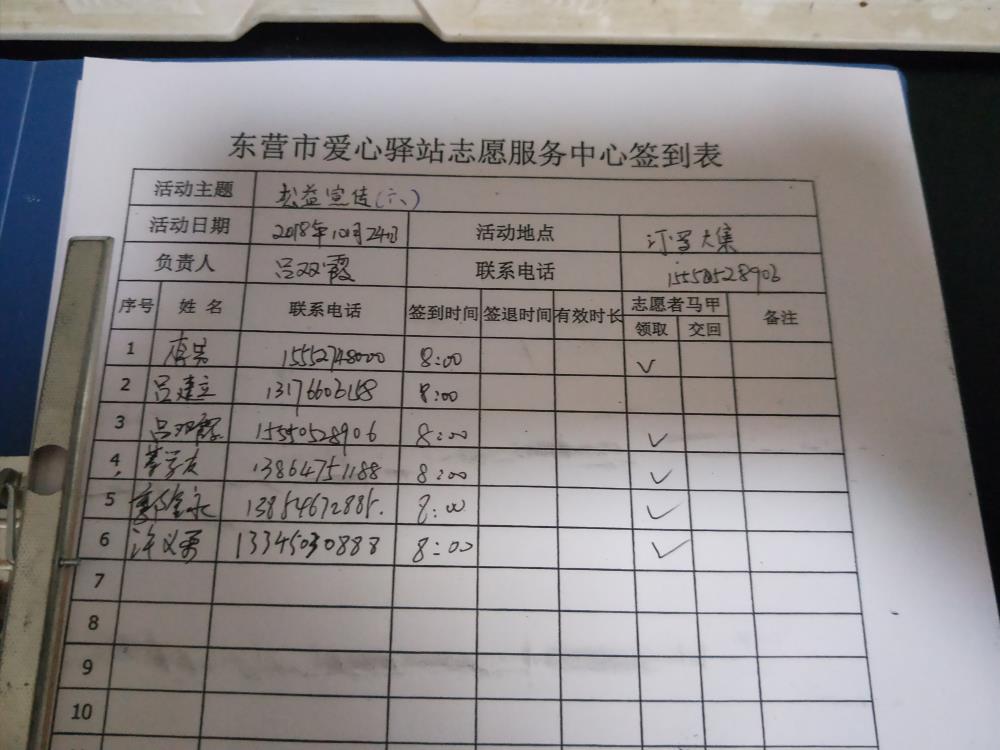 东营市爱心驿站志愿服务中心签到表
活动主题 公益宣传(六)
活动日期 2018年10月24日 活动地点 汀罗大集
负责人 吕双霞 联系电话 15550528906
序号 姓名 联系电话 签到时间 签退时间 有效时长 志愿者马甲 备注
领取 交回
1 15552748000 8:00 ✓
2 吕建立 13176606168 8:00
3 吕双霞 15550528906 8:00 ✓
4 13864751188 8:00 ✓
5 13854672885. 8:00 ✓
6 许义勇 13345030888 8:00 ✓
7
8
9
10